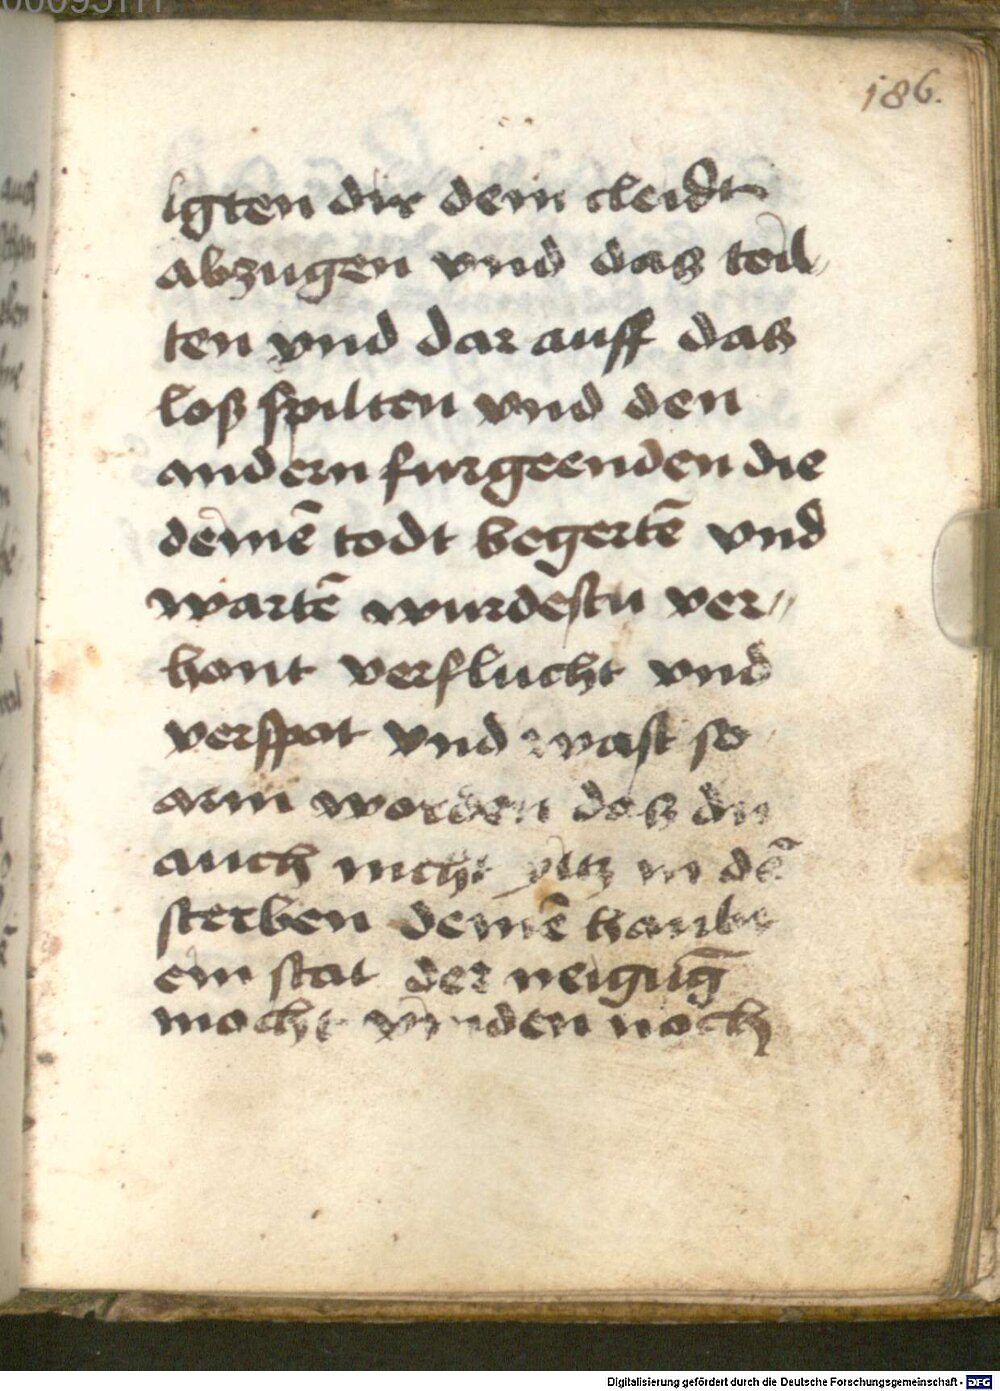 186.
igten dir dein cleidt
abzugen vnd das teil„
ten vnd dar auff das
loß spilten vnd den
andern furgeenden die
deinē todt begertē vnd
wartē wurdestu ver„
hont verflucht vnd
verspot vnd wast so
arm worden das du
auch nicht ytz in dē
sterben deinē haubt
ein stat der neigūg
mocht vinden noch
Digitalisierung gefördert durch die Deutsche Forschungsgemeinschaft - DFG